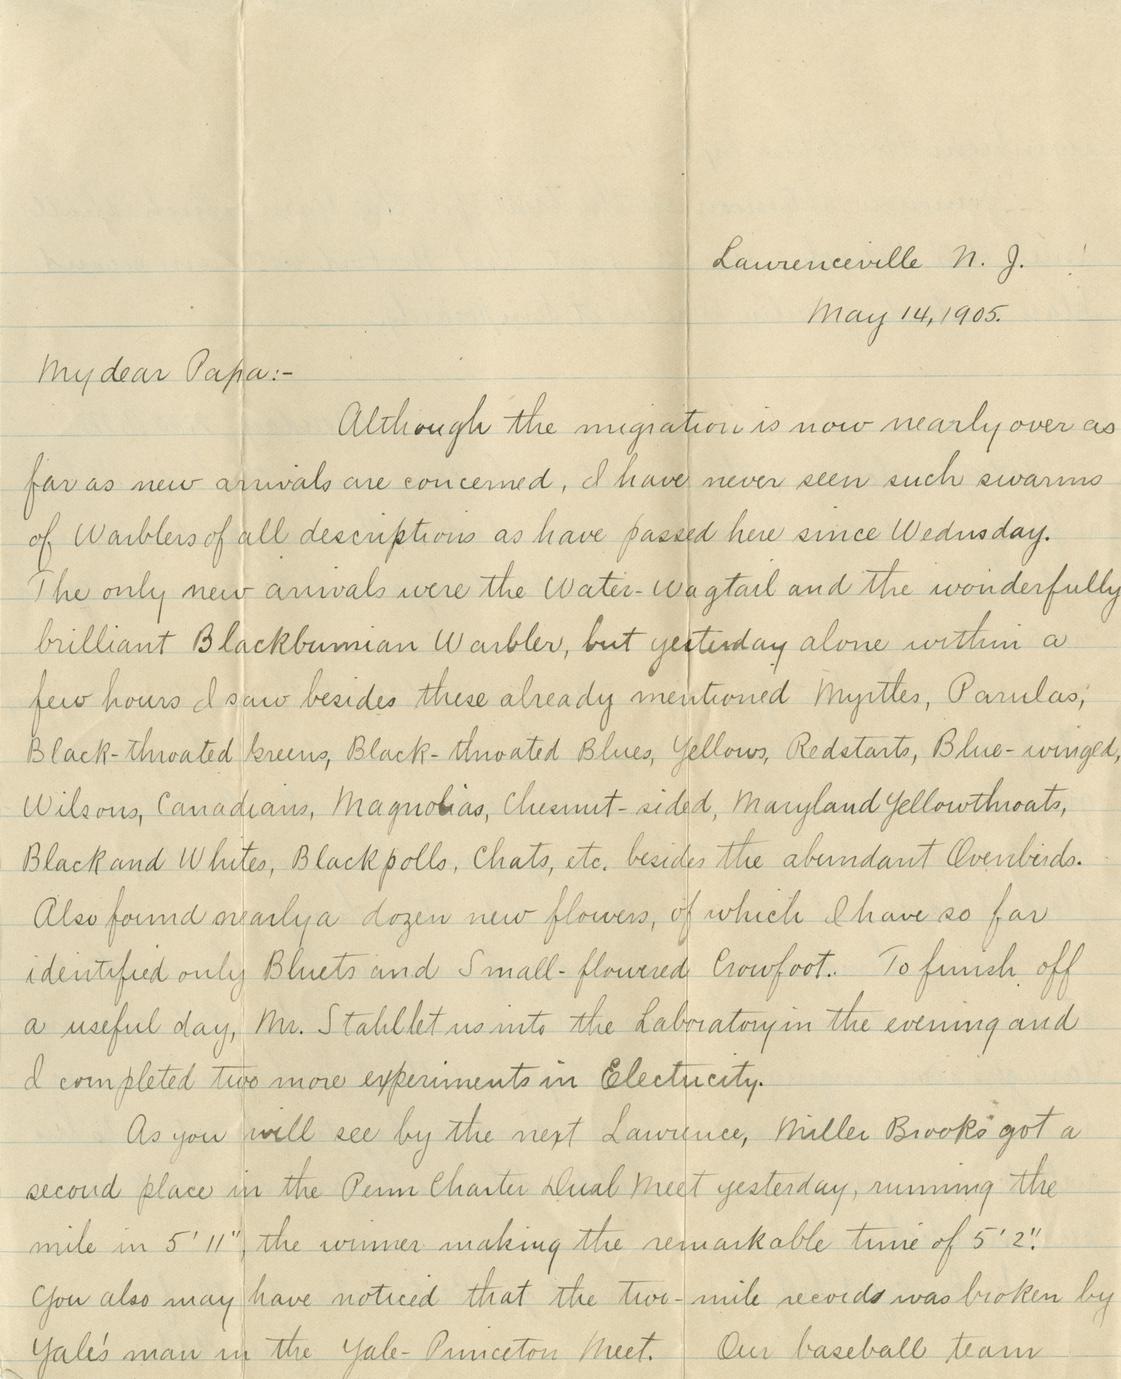 Lawrenceville N. J.
May 14, 1905.
My dear Papa:-
Although the migration is now nearly over as
far as new arrivals are concerned, I have never seen such swarms
of Warblers of all descriptions as have passed here since Wednesday.
The only new arrivals were the Water-Wagtail and the wonderfully
brilliant Blackburnian Warbler, but yesterday alone within a
few hours I saw besides these already mentioned Myrtles, Parulas,
Black-throated Greens, Black-throated Blues, Yellows, Redstarts, Blue-winged,
Wilsons, Canadians, Magnolias, Chesnut-sided, Maryland Yellowthroats,
Black and Whites, Blackpolls, Chats, etc. besides the abundant Ovenbirds.
Also found nearly a dozen new flowers, of which I have so far
identified only Bluets and Small-flowered Crowfoot. To finish off
a useful day, Mr. Stahl let us into the Laboratory in the evening and
I completed two more experiments in Electricity.
As you will see by the next Lawrence, Miller Brooks got a
second place in the Penn Charter Dual Meet yesterday, running the
mile in 5' 11", the winner making the remarkable time of 5' 2".
You also may have noticed that the two-mile records was broken by
Yale's man in the Yale-Princeton Meet. Our baseball team